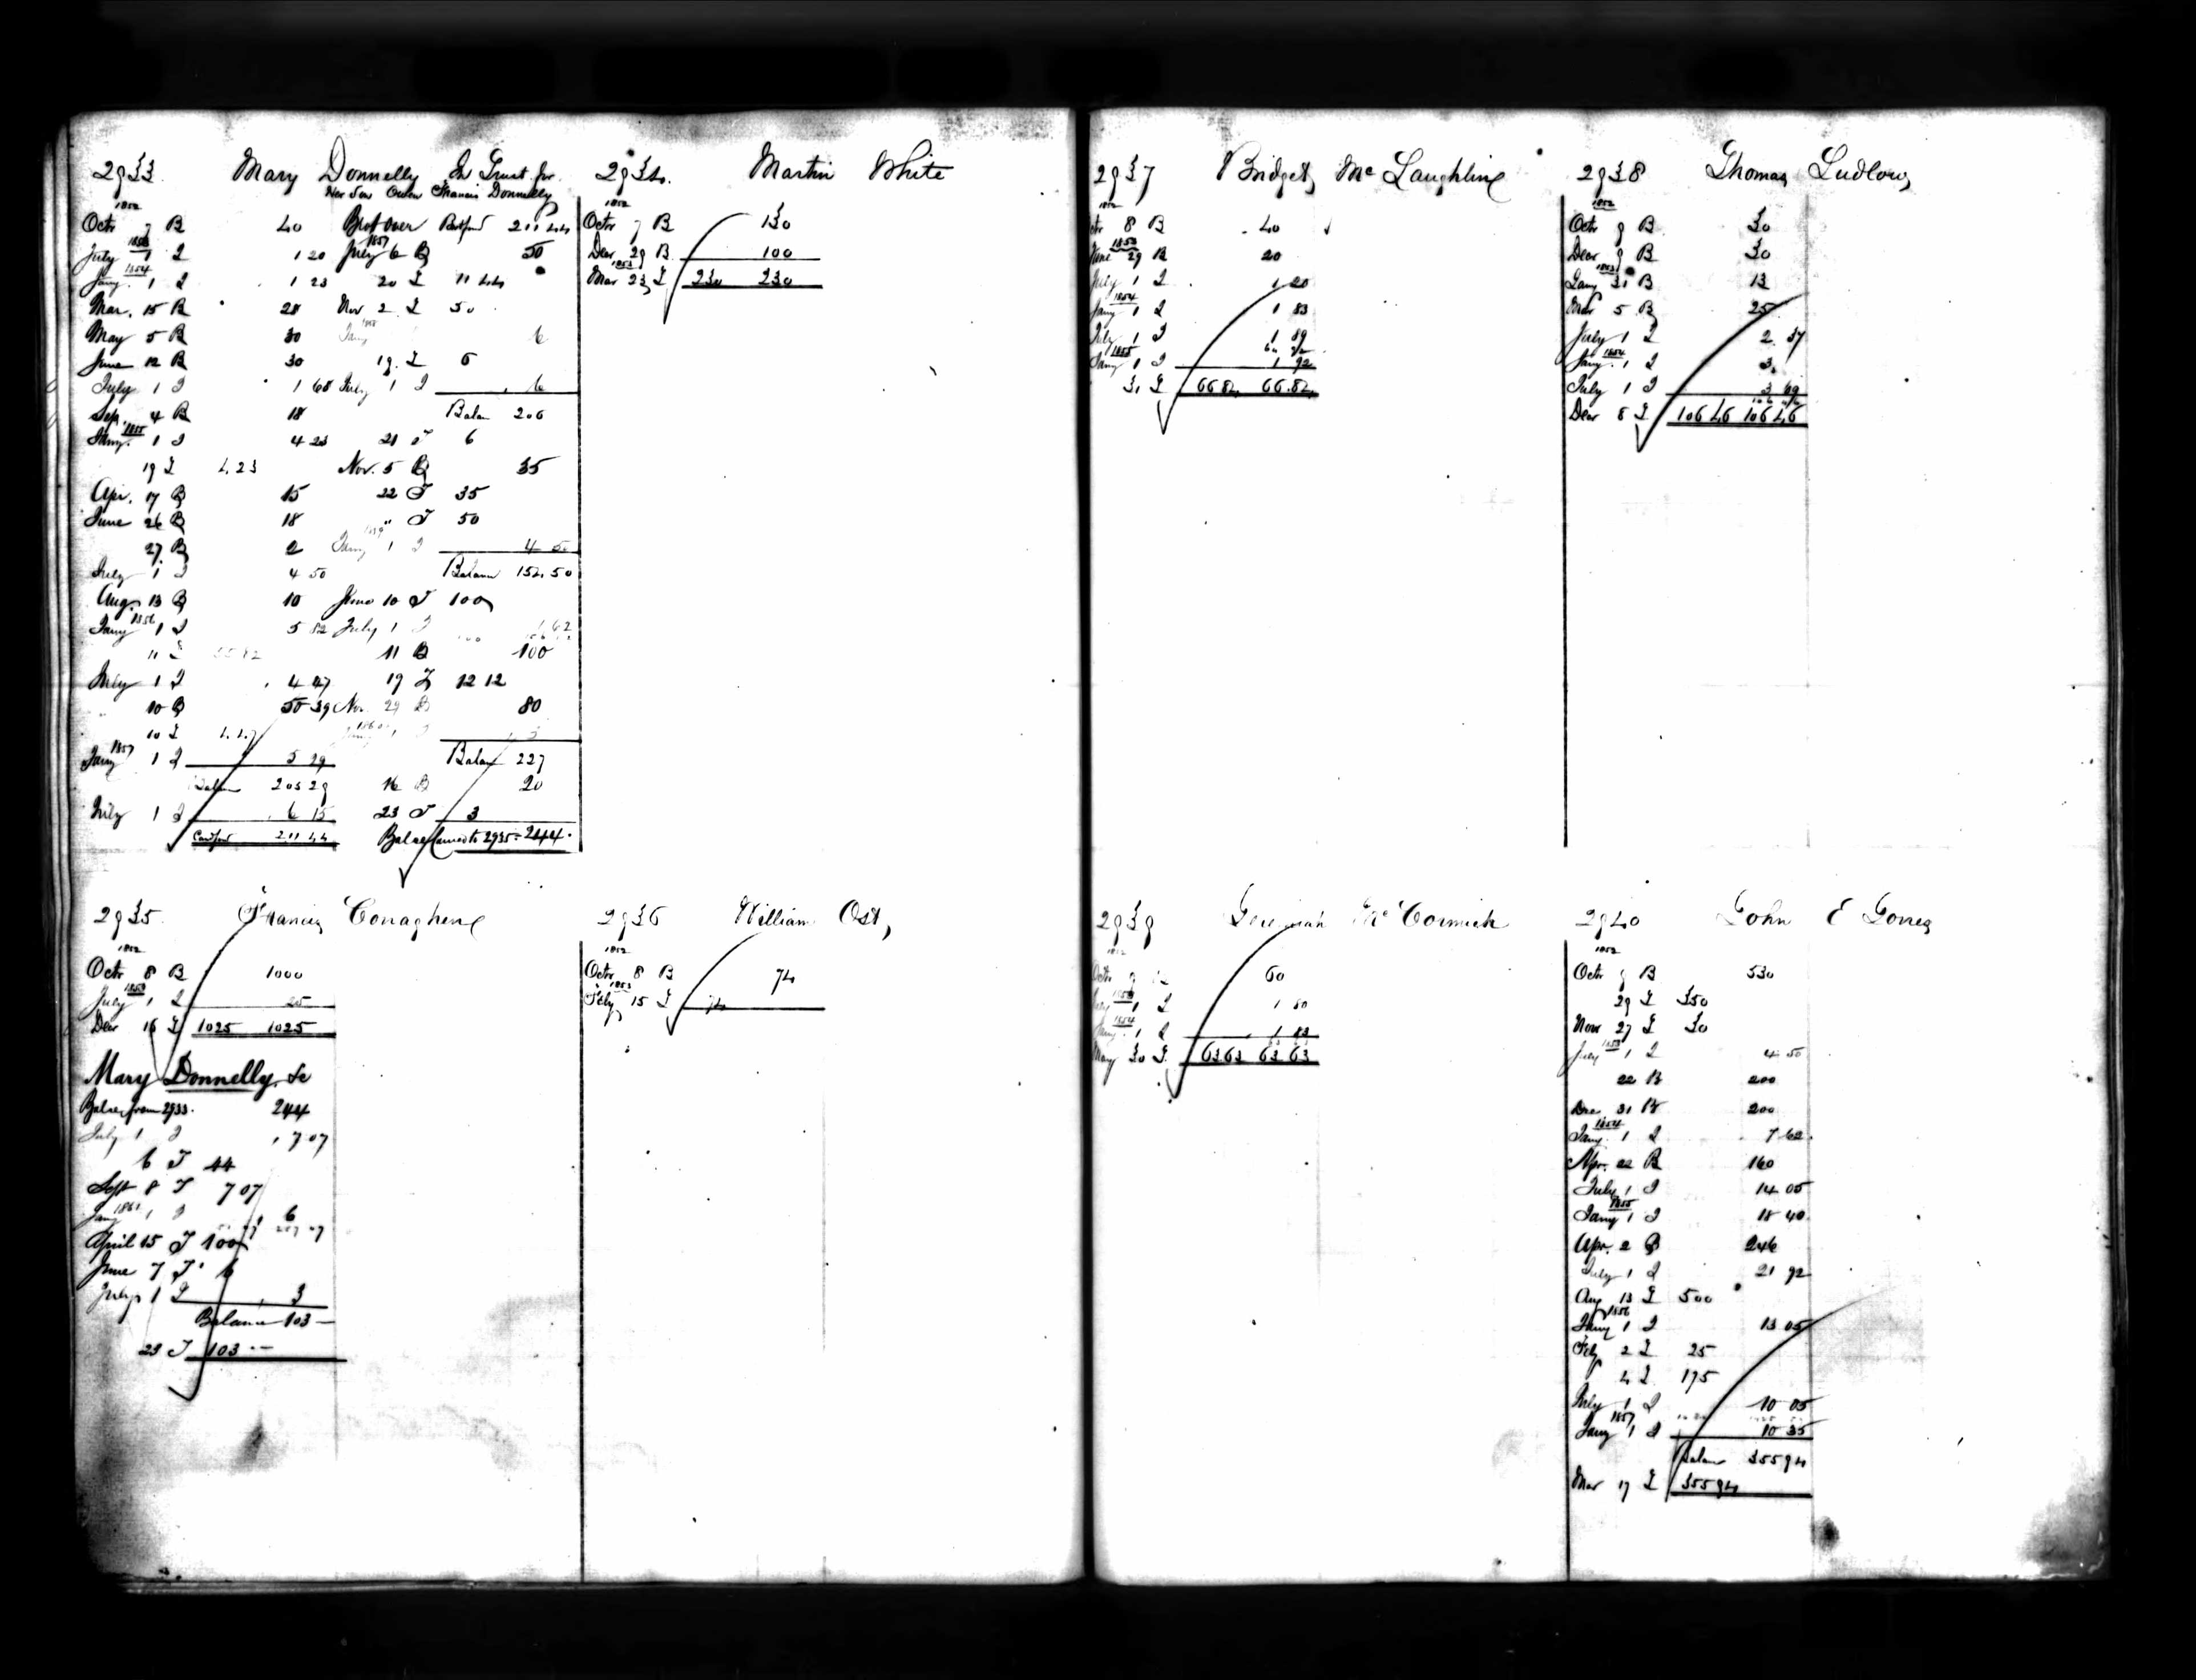 2933 Mary Donnelly In Trust for
Her Son Owen Francis Donnelly
1852
Octr 7 B 40
1853
July 1 I 1 20
1854
Jany 1 I 1 23
Mar. 15 B 28
May 5 B 30
June 12 B 30
July 1 I 1 68
Sep. 4 B 18
1855
Jany. 1 I 4 23
19 T 4.23
Apr. 17 B 15
June 26 B 18
27 B 2
July 1 I 4 50
Aug. 13 B 10
1856
Jany 1 I 5 82
11 T
July 1 I 4 47
10 B 50 39
10 T
1857
Jany 1 I 5 29
Balan 205 29
July 1 I 6 15
Card fwd 211 44
Brot over 211 44
1857
July 6 B 50
20 T 11 44
Nov 2 T 50
Jany 6
19. T 6
July 1 I 6
Balan 206
21 T 6
Nov. 5 B 35
22 T 35
" T 50
1859
Jany 1 I 4 50
Balann 154.50
June 10 T 100
July 1 I 1 62
11 B 100
19 T 12 12
Nov. 29 B 80
1860
Balan 227
16 B 20
23 T 3
Balae Carried to 2935 = 244.
2934 Martin White
1852
Octr 7 B 130
Decr 29 B 100
1853
Mar 23 T 230 230
2935 Francis Conaghene
1852
Octr 8 B 1000
1853
July 1 I 25
Decr 16 T 1025 1025
Mary Donnelly, &c
Balae from 2933. 244
July 1 I 7 07
6 T 44
Sept 8 T 7 07
1861
Jany 1 I 6
April 15 T 100
June 7 T 6
July 1 I 3
Balance 103 —
23 T 103 --
2936 William Ost,
1852
Octr 8 B 74
1853
Feby 15 T 74
2937 Bridget McLaughline
1852
Octr 8 B 40
1853
June 29 B 20
July 1 I 1 20
1854
Jany 1 I 1 83
July 1 I 1 89
1855
Jany 1 I 1 92
31 T 66 84 66.84
2938 Thomas Ludlow,
1852
Octr 9 B 30
Decr 9 B 30
1853
Jany 31 B 13
Mar 5 B 25
July 1 I 2 37
1854
Jany. 1 I 3
July 1 I 3 09
Decr 8 T 106 46 106 46
2939 Jeremiah McCormick
1852
Octr 9 B 60
1853
July 1 I 1 80
1854
Jany. 1 I 1 83
May 30 T 63 63 63 63
2940 John E Jones
1852
Octr 9 B 530
29 T 350
Novr 27 T 30
1853
July 1 I 4 50
22 B 200
Dec 31 B 200
1854
Jany 1 I 7 62
Apr. 22 B 160
July 1 I 14 05
1855
Jany 1 I 18 40
Apr. 2 B 246
July 1 I 21 92
Aug 13 T 500
1856
Jany 1 I 13 05
Feby 2 T 25
4 T 175
July 1 I 10 05
1857
Jany 1 I 10 35
Balan 355 94
Mar 17 T 355 94